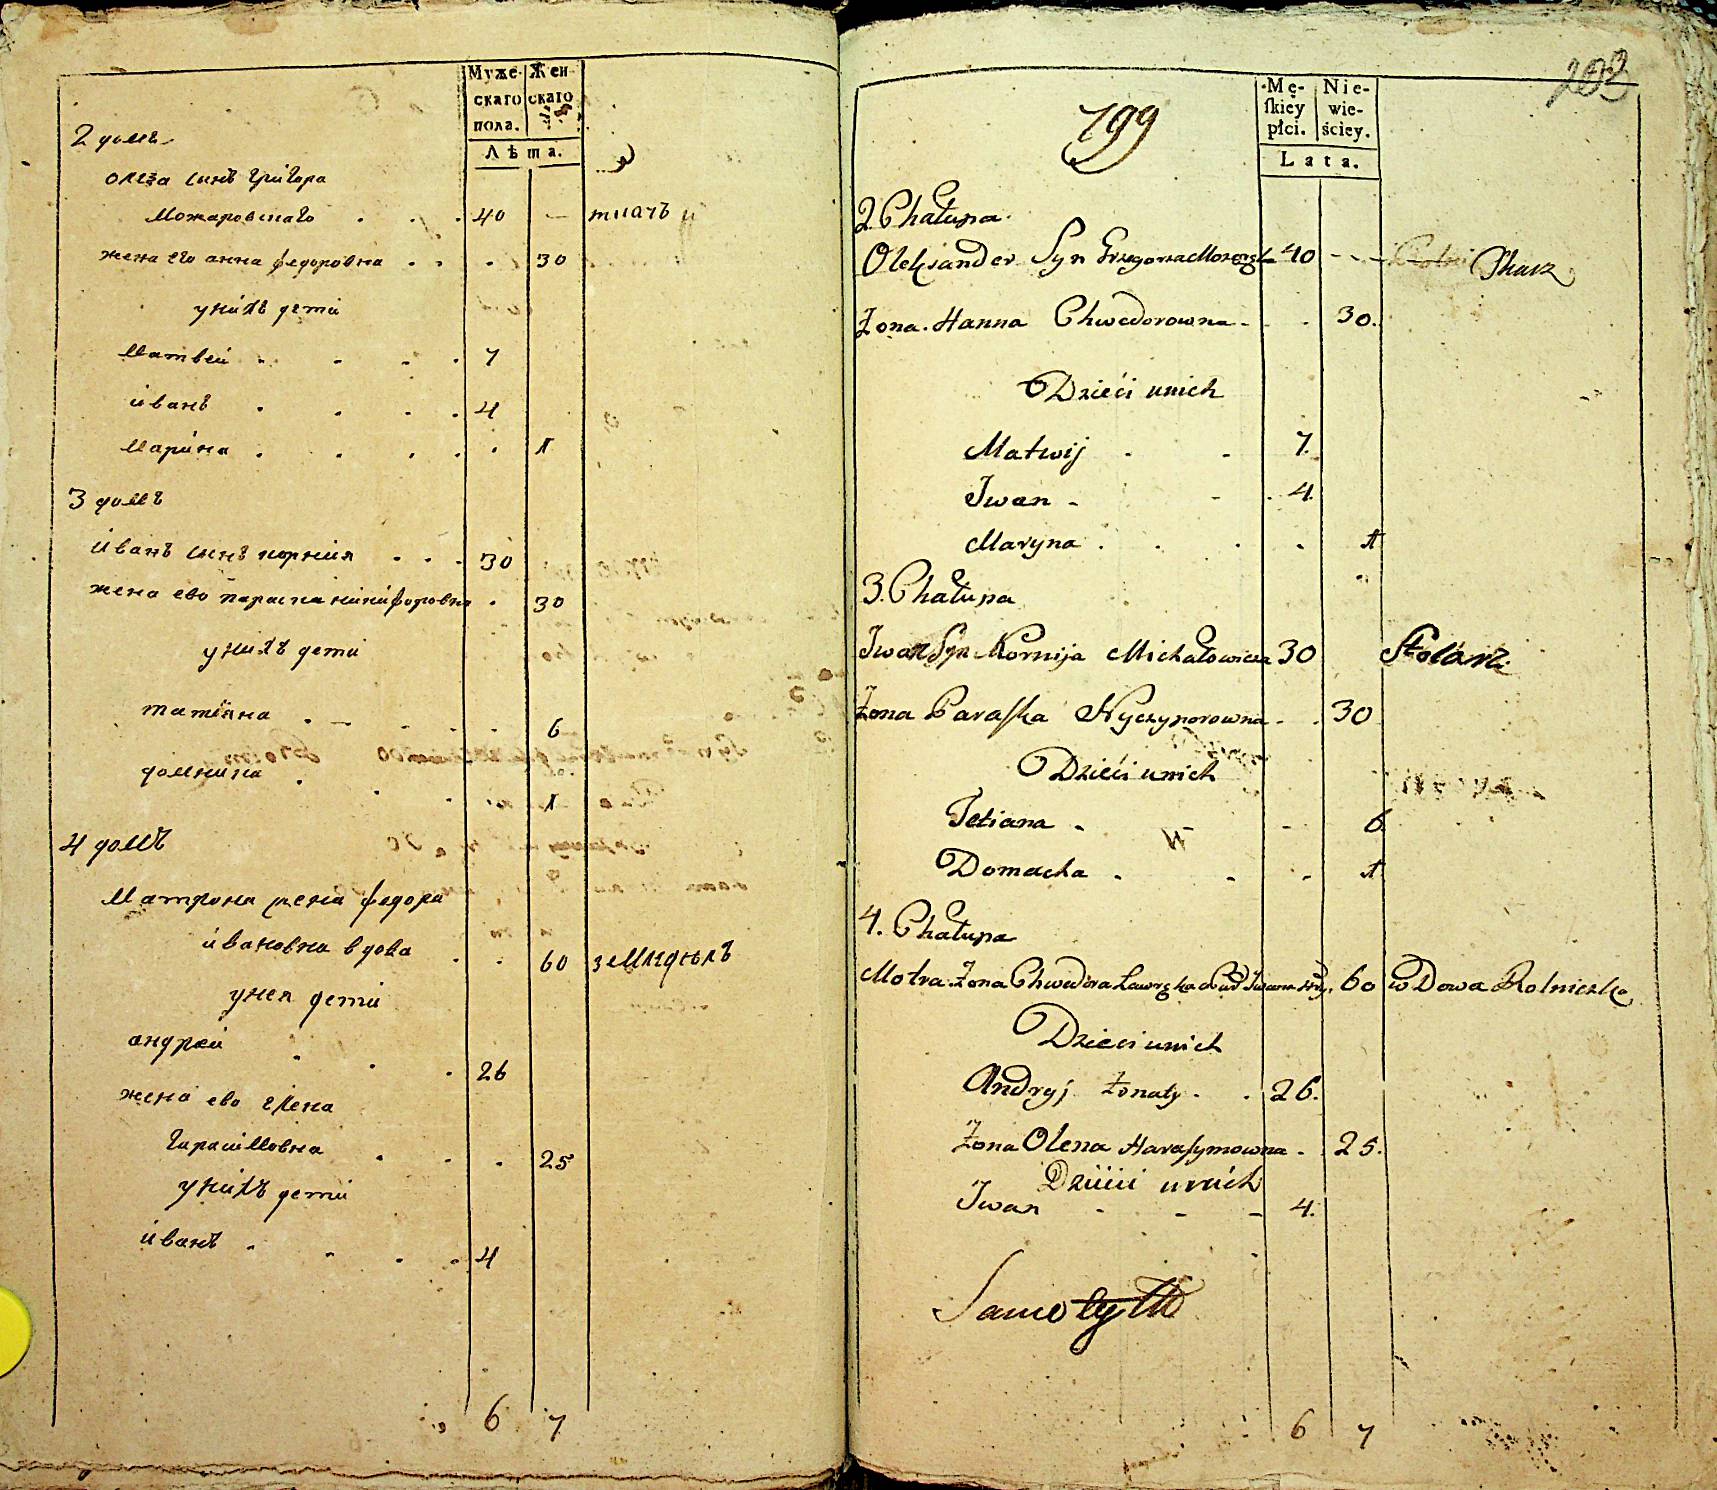 Муже- Жен
скаго скаго
пола.
Лѣта.
2 домъ
олеѯа синъ григора
Можаровскаго 40 — ткачъ
жена его анна федоровна 30
унихъ дети
Матвей 7
иванъ 4
Марина 1
3 домъ
иванъ синъ корния 30
жена ево параска никифоровна 30
унихъ дети
татияна 6
домникиа 1
4 домъ
Матрона жена федора
ивановна вдова 60 земледълъ
унея дети
андрей 26
жена ево елена
гарасимовна 25
унихъ дети
иванъ 4
6 7
203
799
Mę- Nie-
ſkiey wie-
płci. ściey.
Lata.
2. Chałupa
Olexander Syn Grzegorza 40 Tkacz
Żona Hanna Chwedorowna 30.
Dzieći unich
Matwij 7.
Iwan 4.
Maryna 1
3. Chałupa
Iwan Syn Kornija Michałowicza 30 Stolarz
Żona Paraſka Nyczyporowna 30
Dzieći unich
Tetiana 6
Domacha 1
4. Chałupa
Motra Żona Chwedora 60 wDowa Rolniczka
Dzieci unich
Andryj Żonaty 26.
Żona Olena Haraſymowna 25.
Dzieci unich
Iwan 4.
6 7